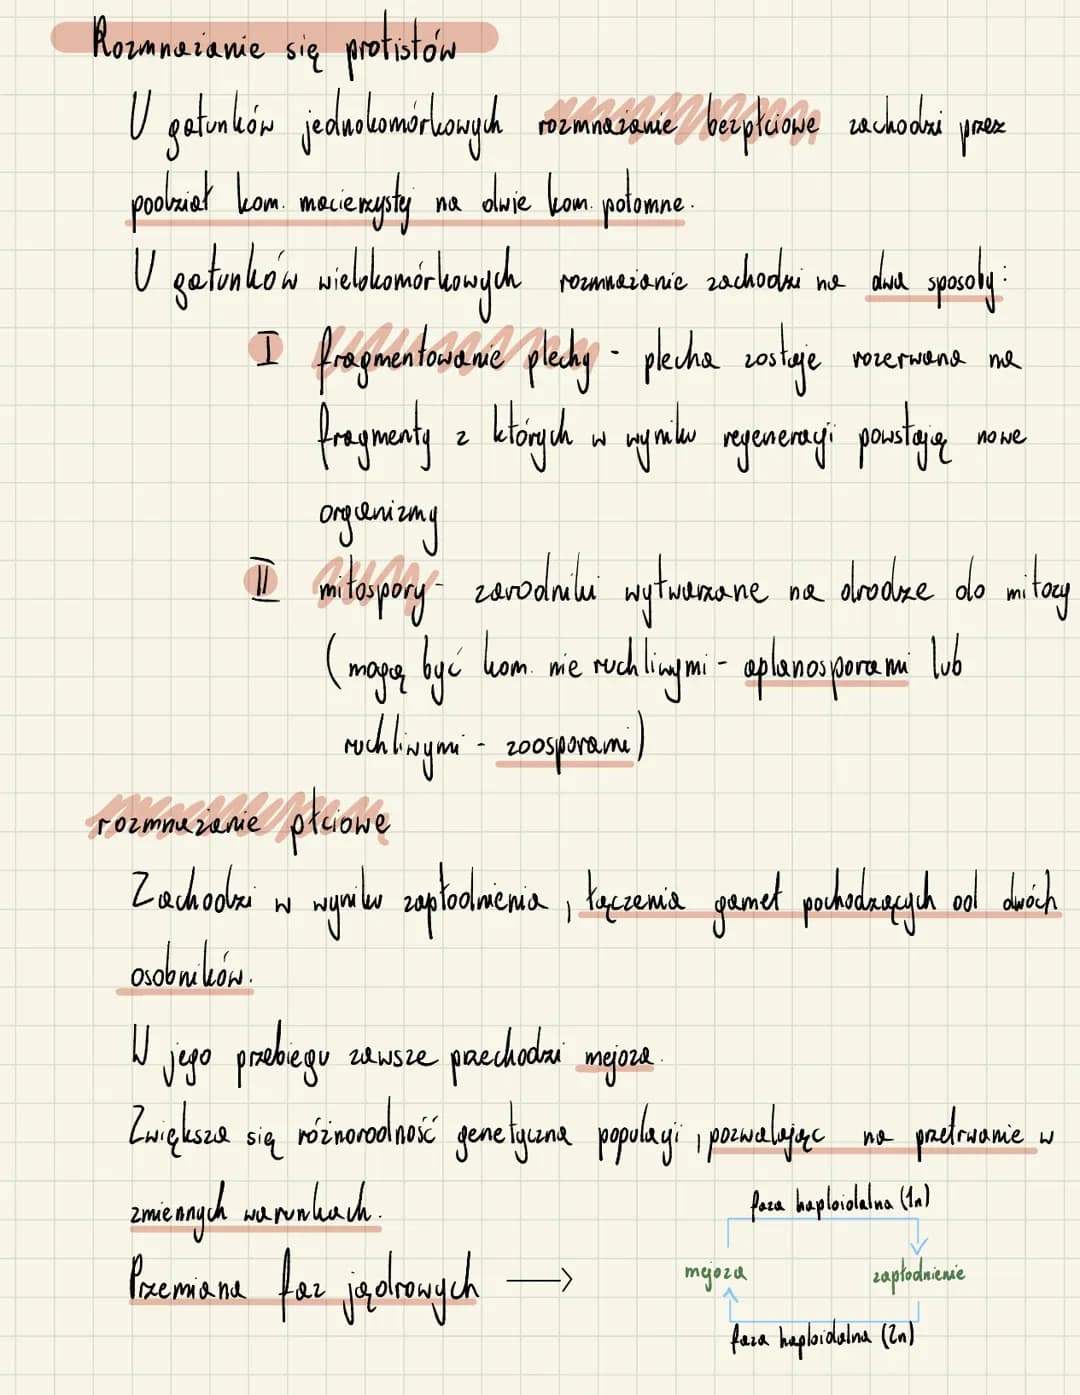 Rozmnażanie się protistów
U gatunków jednokomórkowych rozmnażanie bezpłciowe zachodzi przez
podział kom. macierzystej na dwie kom. potomne.
U gatunków wielokomórkowych rozmnażanie zachodzi na dwa sposoby:
I fragmentowanie plechy - plecha zostaje rozerwana na
fragmenty z których w wyniku regeneracji powstają nowe
organizmy
II mitospory - zarodniki wytwarzane na drodze do mitozy
(mogą być kom. nie ruchliwymi - aplanosporami lub
ruchliwymi - zoosporami)
rozmnażanie płciowe
Zachodzi w wyniku zapłodnienia, łączenia gamet pochodzących od dwóch
osobników.
W jego przebiegu zawsze przechodzi mejoza.
Zwiększa się różnorodność genetyczna populacji, pozwalając na przetrwanie w
zmiennych warunkach.
faza haploidalna (1n)
Przemiana faz jądrowych → mejoza zapłodnienie
faza haploidalna (2n)